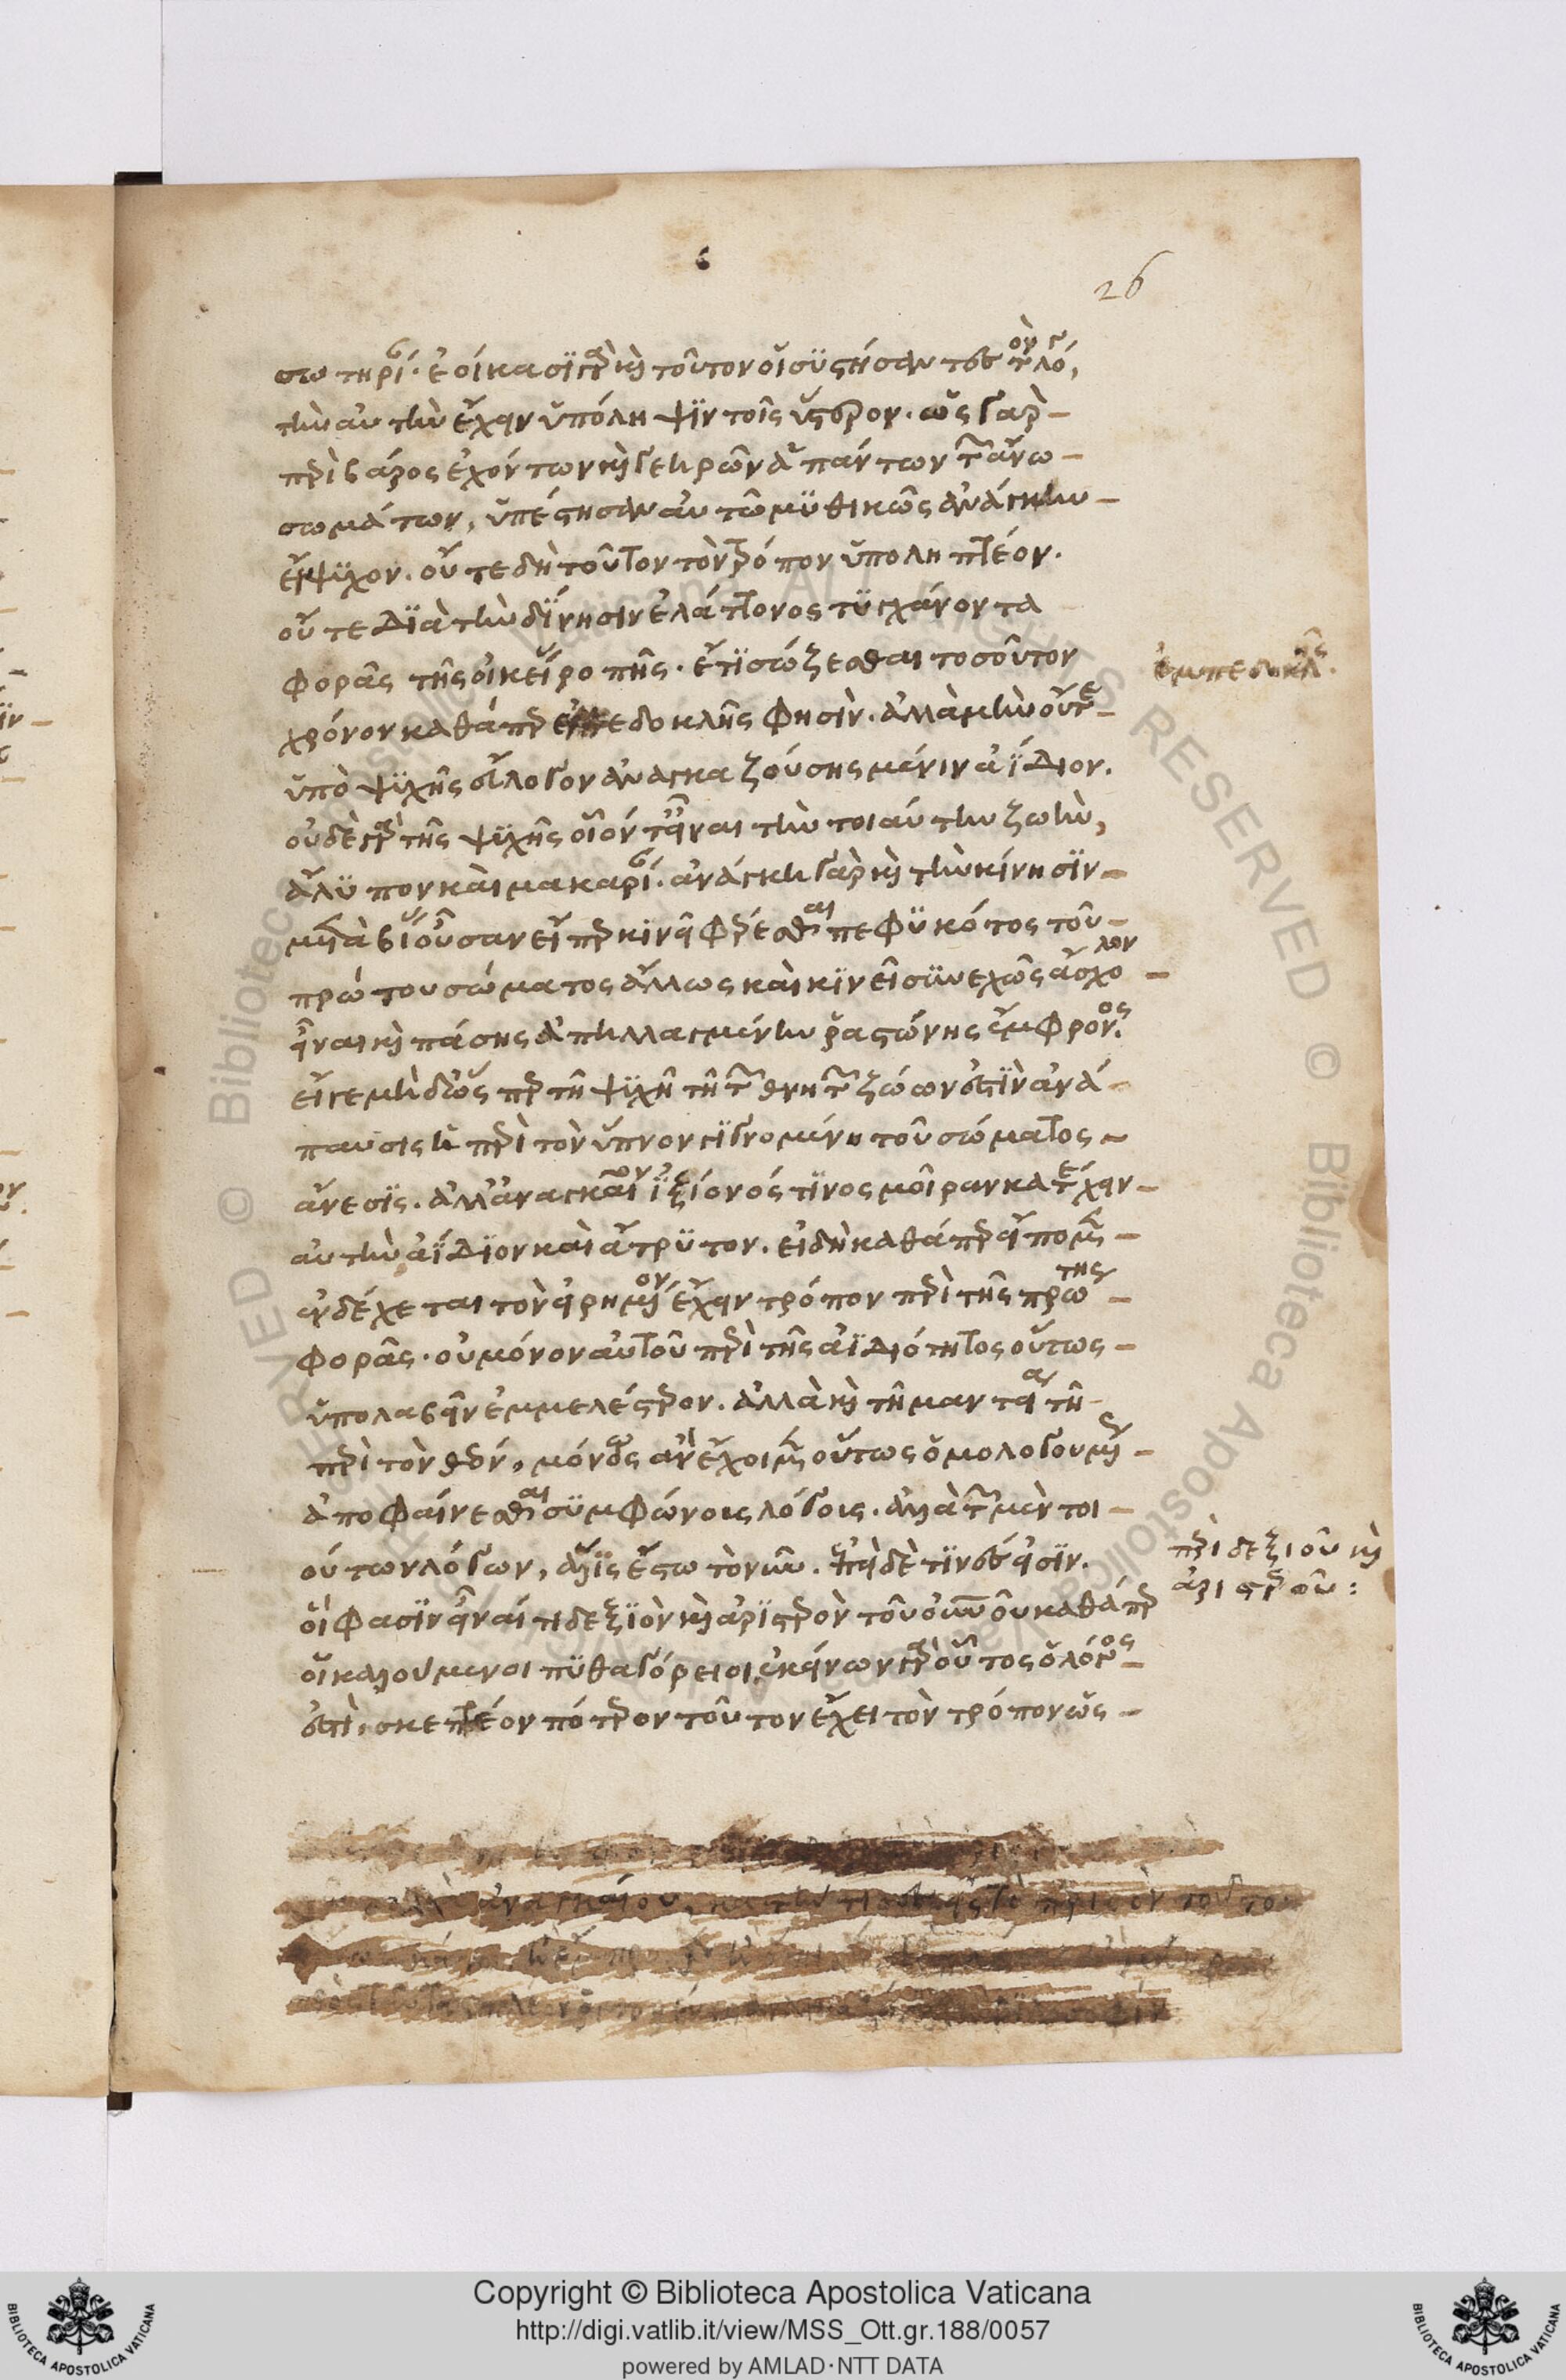 26
σωτηρί· ἐοίκασι γὰρ καὶ τοῦτον οἱ συστήσαντες τὸν λόγον,
τὴν αὐτὴν ἔχειν ὑπόληψιν τοῖς ὕστερον. ὡς γὰρ
περὶ βάρος ἐχόντων καὶ γεηρῶν ἁπάντων τῶν ἄνω
σωμάτων, ὑπέστησαν αὐτῷ μυθικῶς ἀνάγκην
ἔμψυχον. οὔτε δὴ τοῦτον τὸν τρόπον ὑποληπτέον.
οὔτε διὰ τὴν δίνησιν ἐλάττονος τυγχάνοντα
φορᾶς τῆς οἰκείας ῥοπῆς. ἔτι σώζεσθαι τοσοῦτον
χρόνον καθάπερ ἐμπεδοκλῆς φησὶν. ἀλλὰ μὴν οὔτε
ἐμπεδοκλῆς.
ὑπὸ ψυχῆς εὔλογον ἀναγκαζούσης μένειν ἀΐδιον.
οὐδὲ γὰρ τῆς ψυχῆς οἷόν τ' εἶναι τὴν τοιαύτην ζωὴν,
ἄλυπον καὶ μακαρί. ἀνάγκη γὰρ καὶ τὴν κίνησιν
μετὰ βίας οὖσαν εἴπερ κινεῖ φέρεσθαι πεφυκότος τοῦ
πρώτου σώματος ἄλλως καὶ κινεῖ συνεχῶς ἄσχολον
εἶναι καὶ πάσης ἀπηλλαγμένην ῥαστώνης ἔμφρονος.
εἴγε μὴδ' ὥσπερ τῇ ψυχῇ τῇ τῶν θνητῶν ζώων ἐστὶν ἀνά
παυσις ἡ περὶ τὸν ὕπνον γινομένη τοῦ σώματος
ἄνεσις. ἀλλ' ἀναγκαῖον ἰξίονός τινος μοῖραν κατέχειν
αὐτὴν ἀΐδιον καὶ ἄτρυτον. εἰ δὴ καθάπερ εἴπομεν
ἐνδέχεται τὸν εἰρημένον ἔχειν τρόπον περὶ τῆς πρώτης
φορᾶς. οὐ μόνον αὐτοῦ περὶ τῆς ἀϊδιότητος οὕτως
ὑπολαβεῖν ἐμμελέστερον. ἀλλὰ καὶ τῇ μαντείᾳ τῇ
περὶ τὸν θεόν, μόνως ἂν ἔχοιμεν οὕτως ὁμολογουμένως
ἀποφαίνεσθαι συμφώνους λόγους. ἀλλὰ τῶν μὲν τοι
ούτων λόγων, ἅλις ἔστω τὸ νῦν. ἐπεὶ δὲ τινές εἰσιν.
περὶ δεξιοῦ καὶ
ἀριστεροῦ:
οἵ φασιν εἶναί τι δεξιὸν καὶ ἀριστερὸν τοῦ οὐνοῦ καθάπερ
οἱ καλούμενοι πυθαγόρειοι, ἐκείνων γὰρ οὗτος ὁ λόγος
ἐστὶ, σκεπτέον πότερον τοῦτον ἔχει τὸν τρόπον ὡς
Copyright © Biblioteca Apostolica Vaticana
http://digi.vatlib.it/view/MSS_Ott.gr.188/0057
powered by AMLAD·NTT DATA